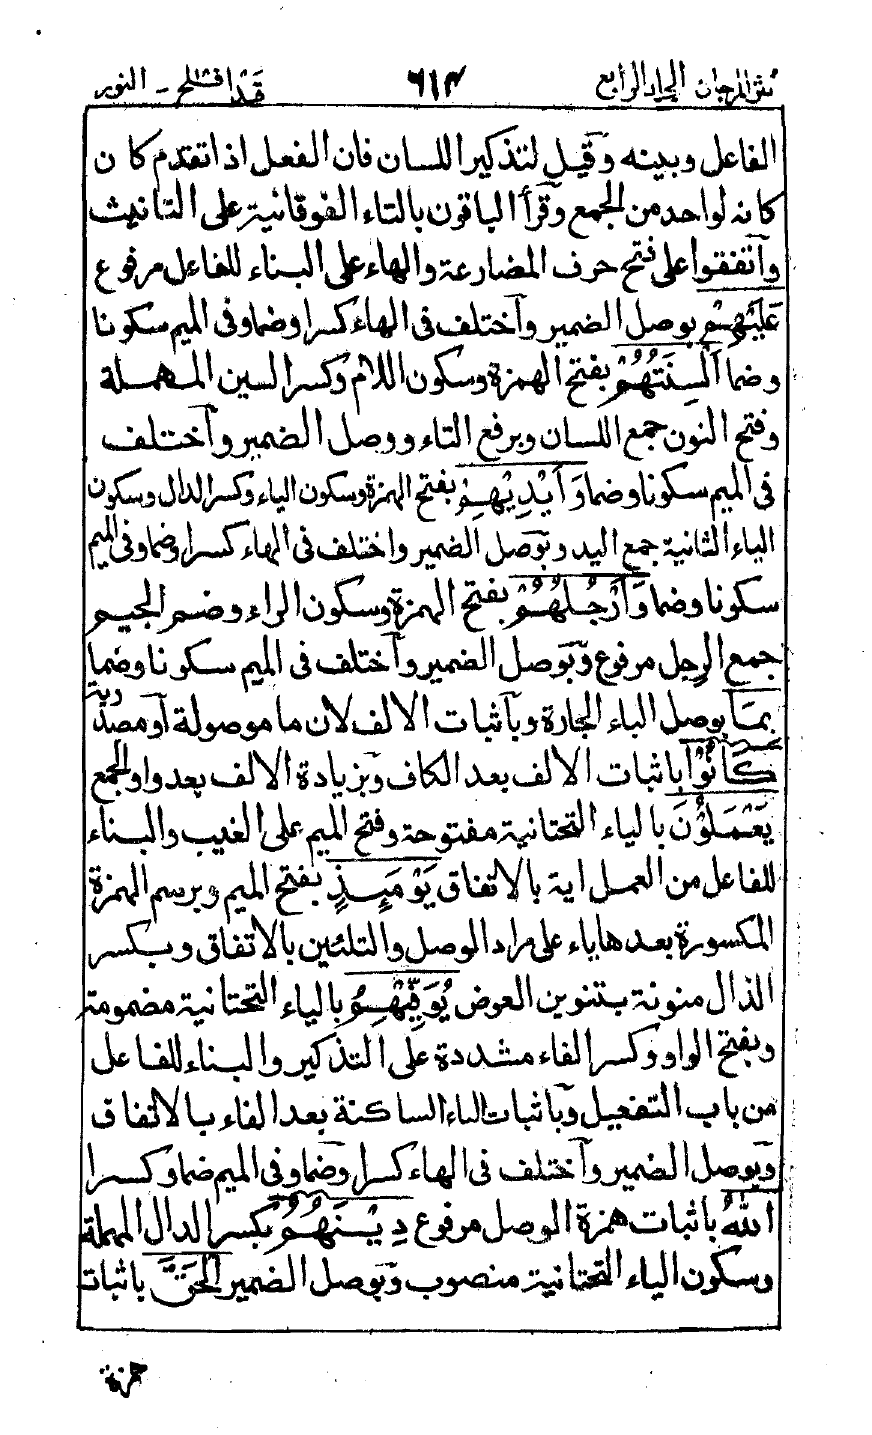 نثر المرجان الجلد الرابع ٦١٣ قد افلح - النور
الفاعل وبينه وقيل لتذكير اللسان فان الفعل اذا تقدم كان
كانه لواحد من الجمع وقرأ الباقون بالتاء الفوقانية على التانيث
واتفقوا على فتح حرف المضارعة والهاء على البناء للفاعل مرفوع
عَلَيْهِمْ بوصل الضمير واختلف فى الهاء كسرا وضما وفى الميم سكونا
وضما اَلْسِنَتُهُمْ بفتح الهمزة وسكون اللام وكسر السين المهملة
وفتح النون جمع اللسان وبرفع التاء ووصل الضمير واختلف
فى الميم سكونا وضما وَاَيْدِيْهِمْ بفتح الهمزة وسكون الياء وكسر الدال وسكون
الياء الثانية جمع اليد وبوصل الضمير واختلف فى الهاء كسرا وضما وفى الميم
سكونا وضما وَاَرْجُلُهُمْ بفتح الهمزة وسكون الراء وضم الجيم
جمع الرجل مرفوع وبوصل الضمير واختلف فى الميم سكونا وضما
بِمَا بوصل الباء الجارة وباثبات الالف لان ما موصولة او مصدرية
كَانُوْا باثبات الالف بعد الكاف وبزيادة الالف بعد واو الجمع
يَعْمَلُوْنَ بالياء التحتانية مفتوحة وفتح الميم على الغيب والبناء
للفاعل من العمل اية بالاتفاق يَوْمَئِذٍ بفتح الميم وبرسم الهمزة
المكسورة بعدها ياء على مراد الوصل والتليين بالاتفاق وبكسر
الذال منونة بتنوين العوض يُوَفِّيْهِمُ بالياء التحتانية مضمومة
وبفتح الواو وكسر الفاء مشددة على التذكير والبناء للفاعل
من باب التفعيل وباثبات الياء الساكنة بعد الفاء بالاتفاق
وبوصل الضمير واختلف فى الهاء كسرا وضما وفى الميم ضما وكسرا
اللّٰهُ باثبات همزة الوصل مرفوع دِيْنَهُمُ بكسر الدال المهملة
وسكون الياء التحتانية منصوب وبوصل الضمير الْحَقَّ باثبات
همزة